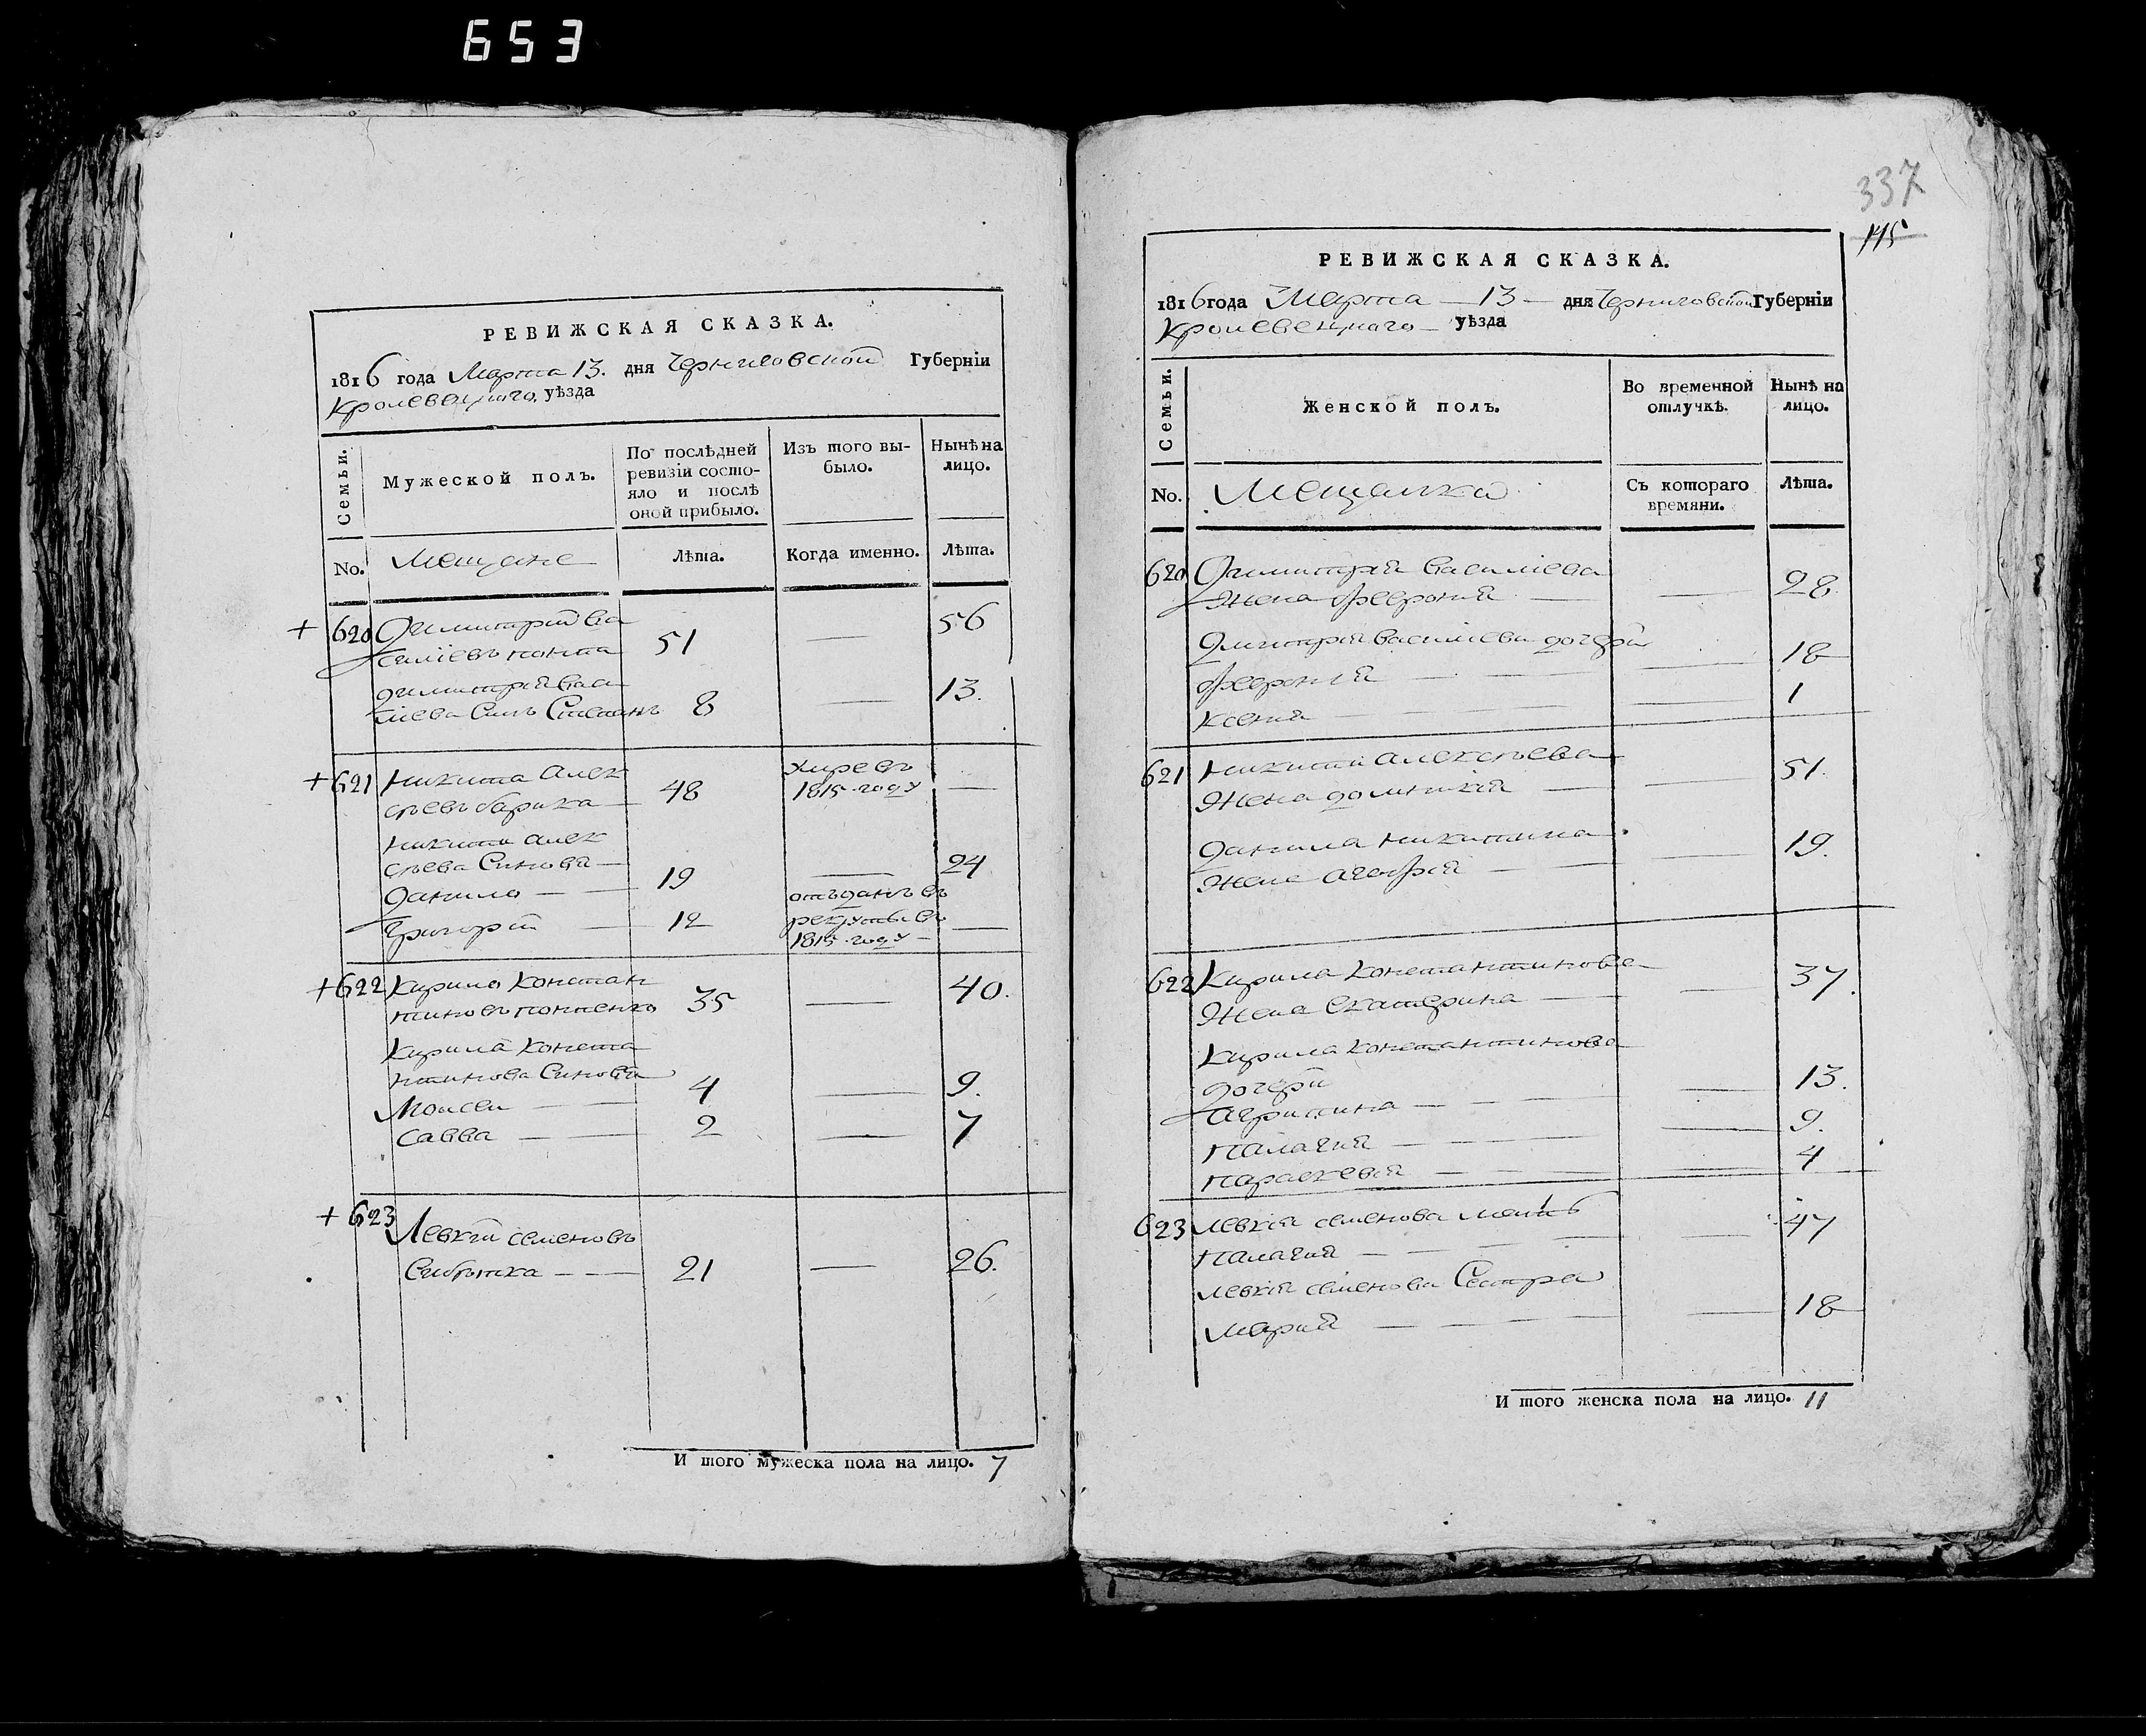 653
РЕВИЖСКАЯ СКАЗКА.
1816 года Марта 13. дня Черниговской Губерніи
Кролевецкаго уѣзда
Семьи.
Мужеской полъ.
По послѣдней ревизіи состо-
яло и послѣ оной прибыло.
Изъ того вы-
было.
Нынѣ на
лицо.
No.
Мещане
Лѣта.
Когда именно.
Лѣта.
+ 620 Димитрій Ва
силіевъ 51 — 56
Димитрія Васи
лиева Синъ Степанъ 8 — 13.
+ 621 Никита Алек
сѣевъ 48 умре въ 1815 году —
Никити Алек
сѣева Синовя
Данило — 19 — 24
Григорій — 12 отъданъ въ
рекруты въ
1815 году — —
+ 622 Кирило Констан
тиновъ 35 — 40.
Кирила Конста
нтинова Синовя
Моисеи — 4 — 9.
Савва — 2 — 7
+ 623 Левкій Семеновъ
21 — 26.
И того мужеска пола на лицо. 7
337
145
РЕВИЖСКАЯ СКАЗКА.
1816 года Марта — 13 — дня Черниговской Губерніи
Кролевецкаго — уѣзда
Семьи.
Женской полъ.
Во временной
отлучкѣ.
Нынѣ на
лицо.
No.
Мещанка
Съ котораго
времяни.
Лѣта.
620 Димитрія Василіева
Жена Феѳронія — — 28
Дмитрія Василиева дочери
Феѳронія — — 18
Ксенія — — 1
621 Никити Алексѣева
Жена Домникія — — 51.
Данила Никитина
Жена Агафія — — 19.
622 Кирила Константинова
Жена Екатерина — — 37.
Кирила Константинова
дочери
Агрипина — — 13.
Палагия — — 9.
Параскевія — — 4
623 Левкія Семенова мать
Палагия — — 47
Левкія Семенова Сестра
Мария — — 18
И того женска пола на лицо. 11